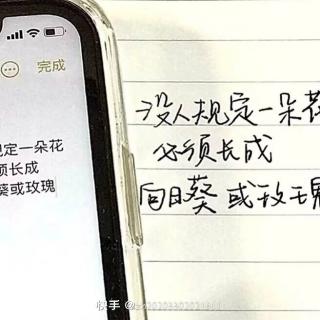 完成
规定一朵花
须长成
葵或玫瑰
没人规定一朵花
必须长成
向日葵或玫瑰
快手